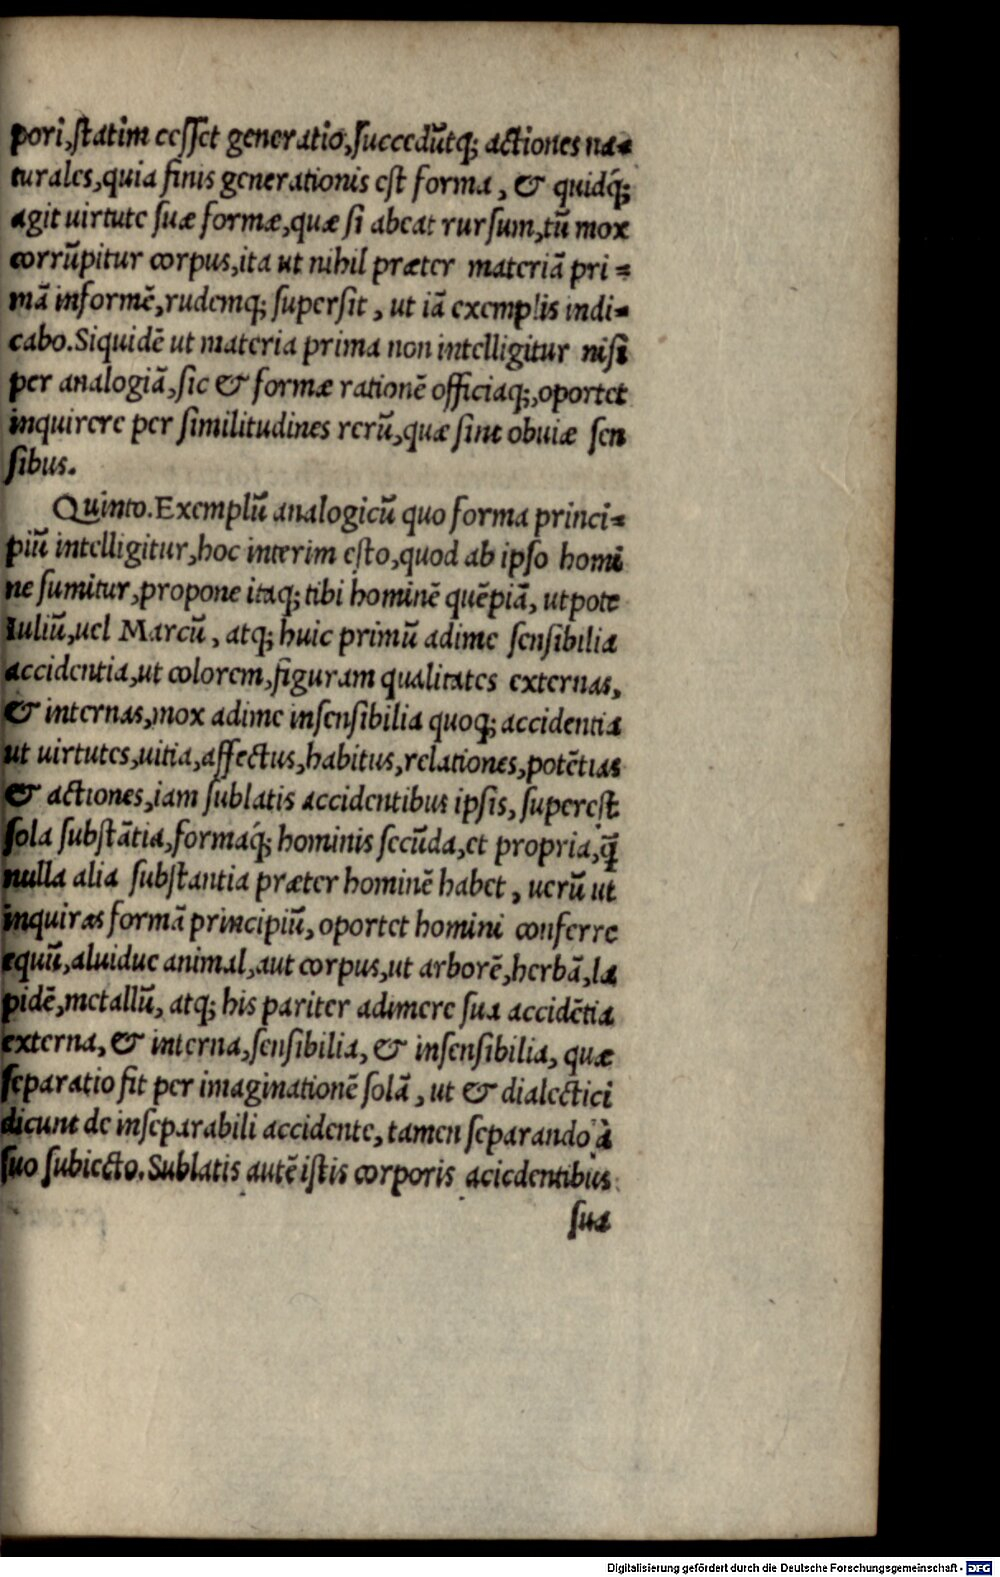 pori, statim cesset generatio, succedũtq; actiones na-
turales, quia finis generationis est forma, & quidq́;
agit uirtute suæ formæ, quæ si abeat rursum, tũ mox
corrũpitur corpus, ita ut nihil præter materiã pri-
mã informẽ, rudemq; supersit, ut iã exemplis indi-
cabo. Siquidẽ ut materia prima non intelligitur nisi
per analogiã, sic & formæ rationẽ officiaq;, oportet
inquirere per similitudines rerũ, quæ sint obuiæ sen
sibus.
Quinto. Exemplũ analogicũ quo forma princi-
piũ intelligitur, hoc interim esto, quod ab ipso homi
ne sumitur, propone itaq; tibi hominẽ quẽpiã, utpote
Iuliũ, uel Marcũ, atq; huic primũ adime sensibilia
accidentia, ut colorem, figuram qualitates externas,
& internas, mox adime insensibilia quoq; accidentia
ut uirtutes, uitia, affectus, habitus, relationes, potẽtias
& actiones, iam sublatis accidentibus ipsis, superest
sola substãtia, formaq́; hominis secũda, et propria, q̃
nulla alia substantia præter hominẽ habet, uerũ ut
inquiras formã principiũ, oportet homini conferre
equũ, aluidue animal, aut corpus, ut arborẽ, herbã, la
pidẽ, metallũ, atq; his pariter adimere sua accidẽtia
externa, & interna, sensibilia, & insensibilia, quæ
separatio fit per imaginationẽ solã, ut & dialectici
dicunt de inseparabili accidente, tamen separando à
suo subiecto. Sublatis autẽ istis corporis aciedentibus
sua
Digitalisierung gefördert durch die Deutsche Forschungsgemeinschaft - DFG